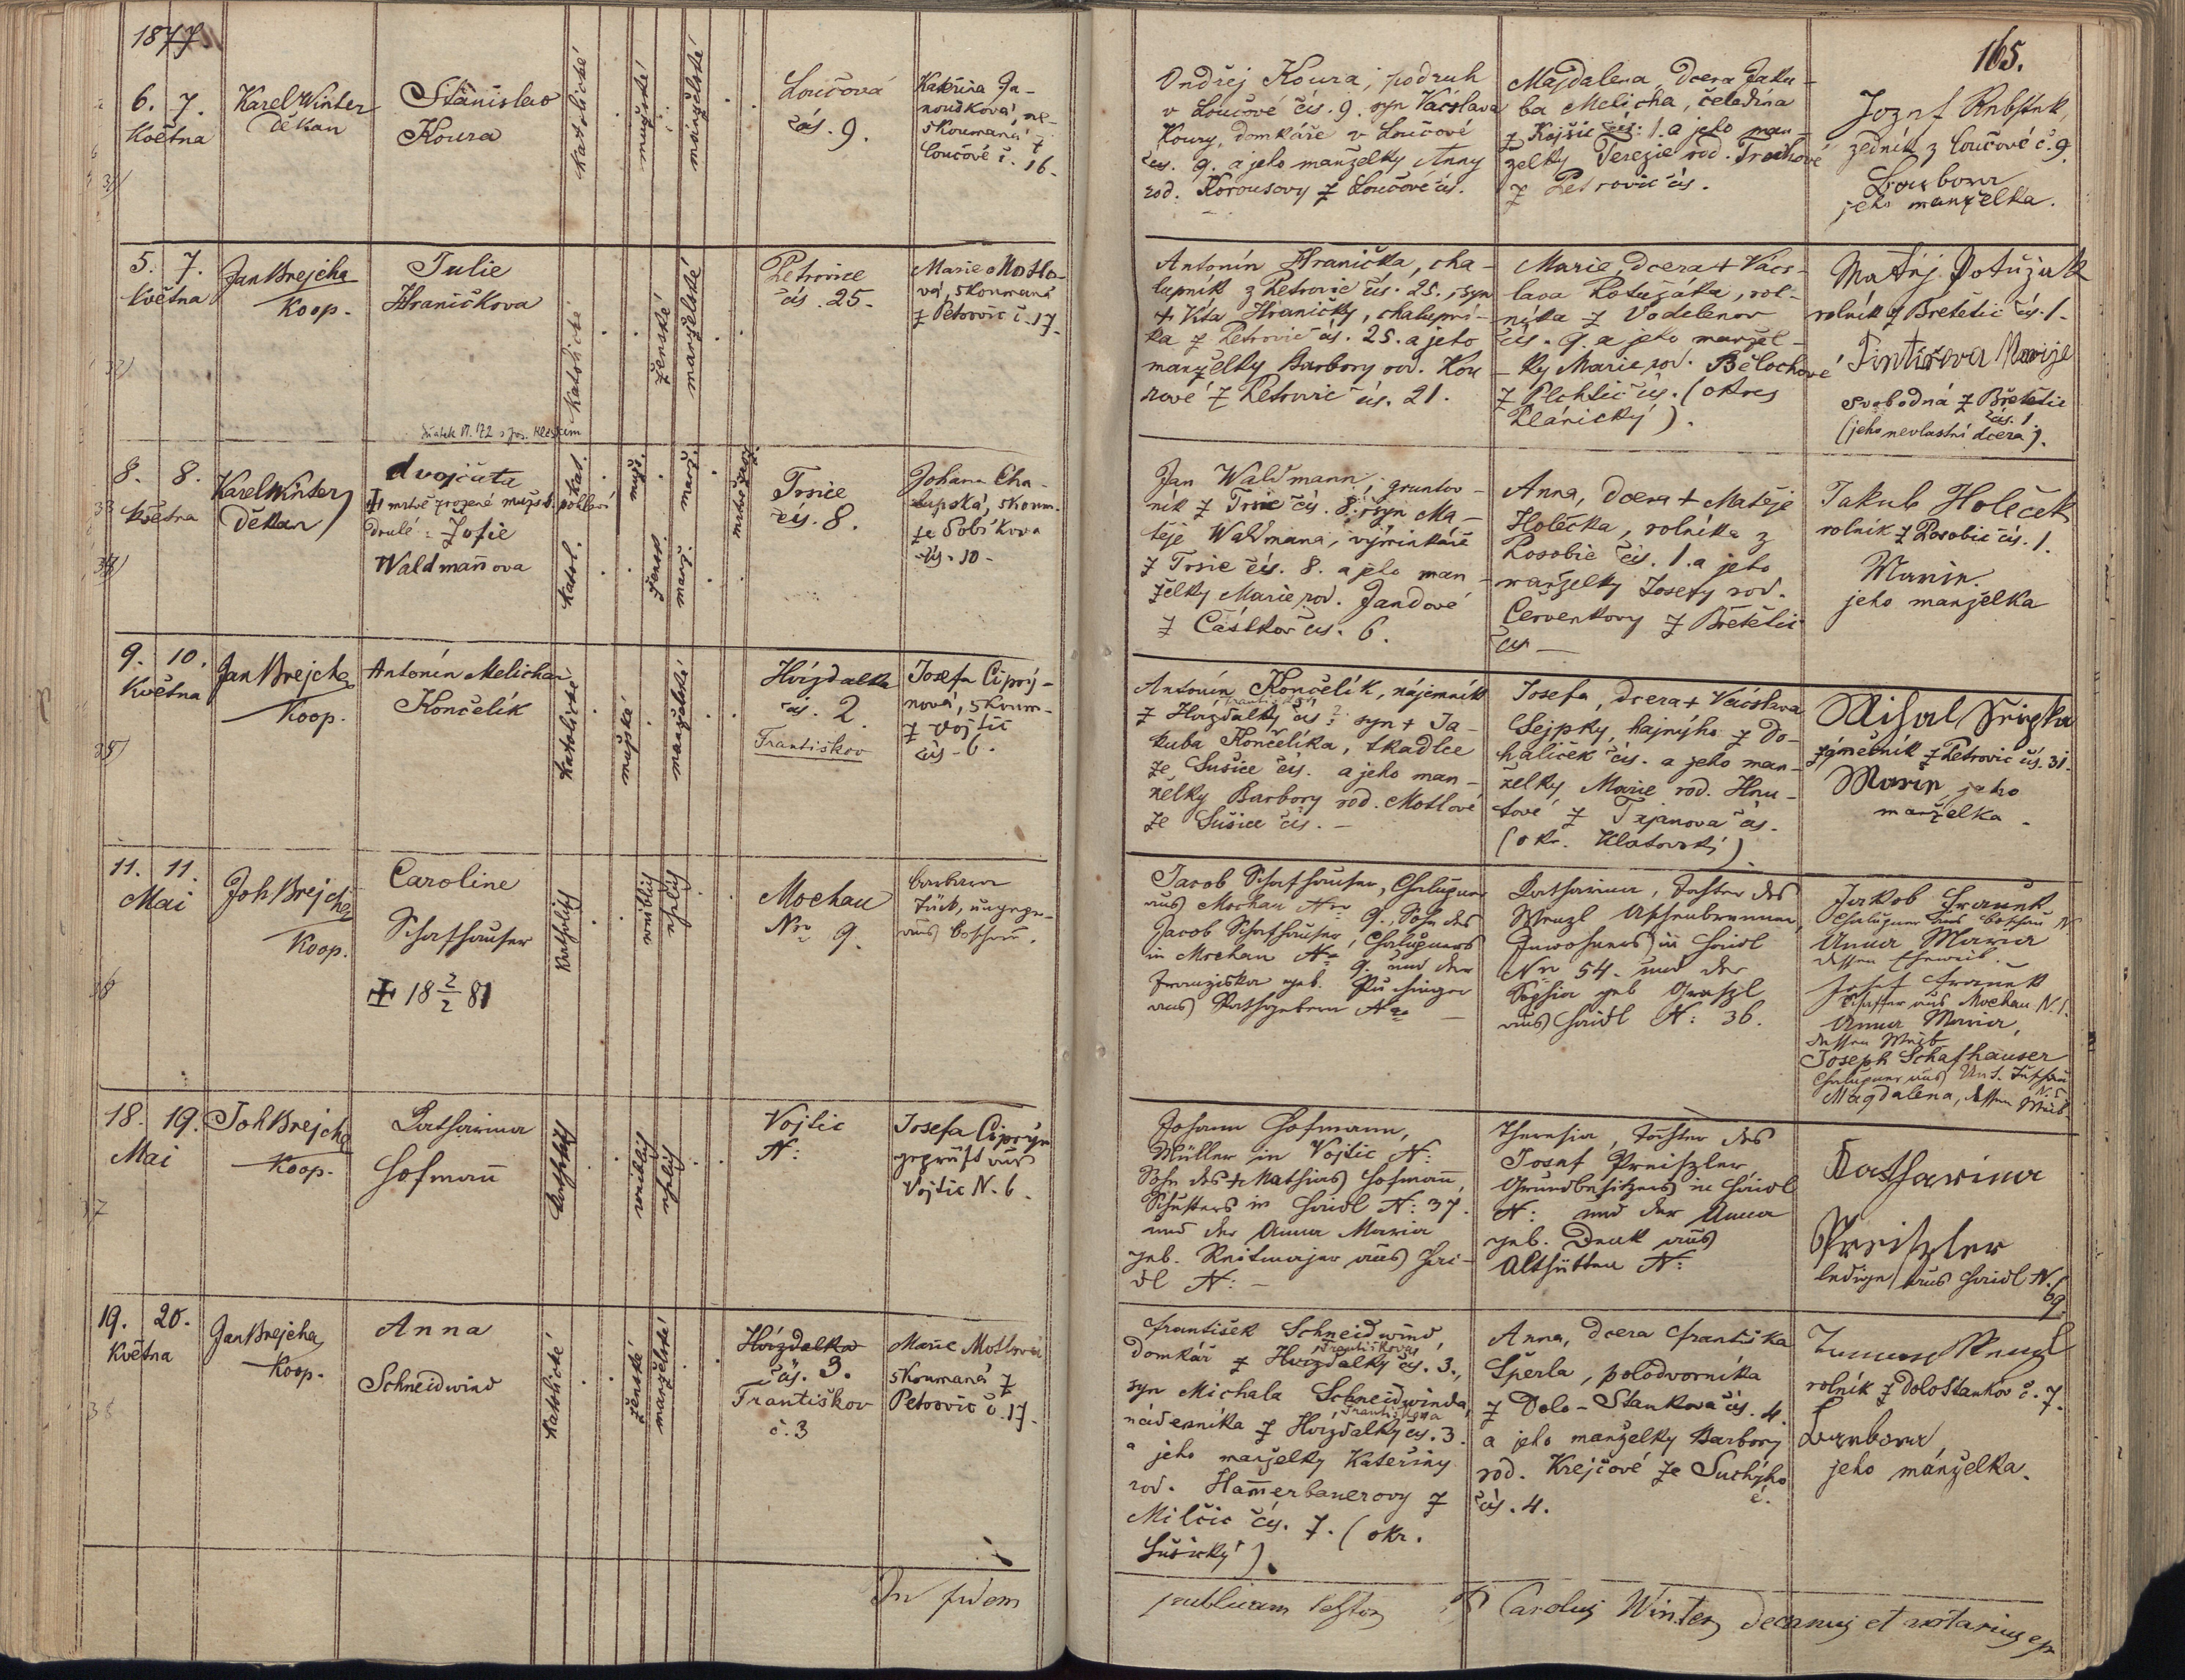 1877
165.
6. 7.
Května
Karel Winter
Děkan
Stanislav
Koura
katolické
mužské
manželské
Loučová
čís. 9.
Kateřina Ja-
noušková, ne-
skoumaná z
Loučové č. 16.
Ondřej Koura, podruh
v Loučové čís. 9. syn Václava
Koury, domkáře v Loučové
čís. 9. a jeho manželky Anny
rod. Korousovy z Loučové čís.
Majdalena, dcera Jaku-
ba Melicha, čeledína
z Kojšic čís: 1. a jeho man-
želky Terezie rod.
z Petrovic čís.
Josef
zedník z Loučové č. 9.
Barbora
jeho manželka.
5. 7.
Května
Jan Brejcha
Koop.
Julie
Hraničkova
katolické
ženské
manželské
Petrovice
čís. 25.
Marie Motlo-
vá, skoumaná
z Petrovic č. 17.
Antonín Hranička, cha-
lupník z Petrovic čís. 25., syn
+ Víta Hraničky, chalupní-
ka z Petrovic čís. 25. a jeho
manželky Barbory rod. Kou
rové z Petrovic čís. 21.
Marie, dcera + Vács-
lava Potužáka, rol-
níka z Vodelenov
čís. 9. a jeho manžel-
ky Marie rod. Bělochové
z Plchtic čís. (okres
Plánický).
Matěj Potužak
rolník z Břetětic čís. 1.
Tintěrova Marije
svobodná z Břetětic
čís. 1
(jeho nevlastní dcera).
8. 8.
Května
33
34
Karel Winter
Děkan
dvojčata
+ mrtvě zrozené mužsk. pohlaví
druhé: Žofie
Waldmanova
kat.
muž.
manž.
mrtvo zroz.
katol.
žensk.
manž.
Trsice
čís. 8.
Johana Cha-
lupská, skoum.
ze Sobíkova
čís. 10.
Jan Waldmann, gruntov-
ník z Trsic čís. 8. syn Ma-
těje Waldmana, výminkáře
z Trsic čís. 8. a jeho man-
želky Marie rod. Jandové
z Částkov čís. 6.
Anna, dcera + Matěje
Holečka, rolníka z
Rosobic čís. 1. a jeho
manželky Josefy rod.
Cervenkovy z Břetětic
čís —
Jakub Holeček
rolník z Rosobic čís. 1.
Marie.
jeho manželka
9. 10.
Května
35
Jan Brejcha
Koop.
Antonín Melichar
Končelík
katolické
mužské
manželské
Hvízdalka
čís. 2.
Františkov
Josefa Ciprý-
nová, skoum-
z Vojtic
čís. 6.
Antonín Končelík, nájemník
z Hvizdalky čís 2 syn + Ja-
kuba Končelíka, tkadlce
ze Sušice čís. a jeho man-
želky Barbory rod. Motlové
ze Sušice čís. —
Josefa, dcera + Václava
Sejpky, hajného z Do-
haliček čís. a jeho man-
želky Marie rod. Hnu-
tové z Trjanova čís.
(okr. Klatovský)
zámečník z Petrovic čís. 31.
Marie, jeho
manželka.
11. 11.
Mai
36
Joh Brejcha
Koop.
Caroline
Schafhauser
+ 18 2/2 81
katholisch
weiblich
ehelich
Mochau
Nro 9.
Barbara
Jacob Schafhauser, Chalupner
aus Mochau Nro 9., Sohn des
Jacob Schafhauser, Chalupners
in Mochau Nro 9. und der
Franziska geb.
Katharina, Tochter des
Wenzl Aschenbrenner,
Inwohners in Haidl
Nro 54. und der
Sophia geb
aus Haidl N: 36.
Jakob Franek
Anna Maria
dessen Eheweib.
Josef Franek
aus Mochau N. 1.
Anna Maria,
dessen Weib
Joseph Schafhauser
Magdalena, dessen Weib
18. 19.
Mai
37
Joh Brejcha
Koop.
Katharina
Hofmann
katholisch
weiblich
ehelich
Vojtic
N:
Josefa Ciprýn
geprüft aus
Vojtic N. 6.
Johann Hofmann,
Müller in Vojtic N:
Sohn des + Mathias Hofmann,
Schusters in Haidl N: 37.
und der Anna Maria
geb. Reitmajer aus Hai-
dl N: —
Theresia, Tochter des
Josef Preiszler
Grundbesitzers in Haidl
N: und der Anna
geb. Denk aus
Althütten N:
Katharina
Preiszler
ledige aus Haidl N.
69.
19. 20.
Května
38
Jan Brejcha
Koop.
Anna
Schneidwind
katolické
ženské
manželské
Hvízdalka
čís. 3.
Františkov
č. 3
Marie Motlová
skoumaná z
Petrovic č. 17.
František Schneidwind,
Františkova
domkář z Hvizdalky čís. 3.,
syn Michala Schneidwinda,
Františkova
nádeníka z Hvizdalky čís. 3.
a jeho manželky Kateřiny
rod. Hamerbauerovy z
Milčic čís. 7. (okr.
Sušický).
Anna, dcera Františka
Šperla, polodvorníka
z Dolo-Stankova čís. 4.
a jeho manželky Barbory
rod. Krejčové ze Suchýho
čís. 4.
rolník z DoloStankov č. 7.
Barbora,
jeho manželka.
In fidem
publicam testor Carolus Winter, decanus et notarius